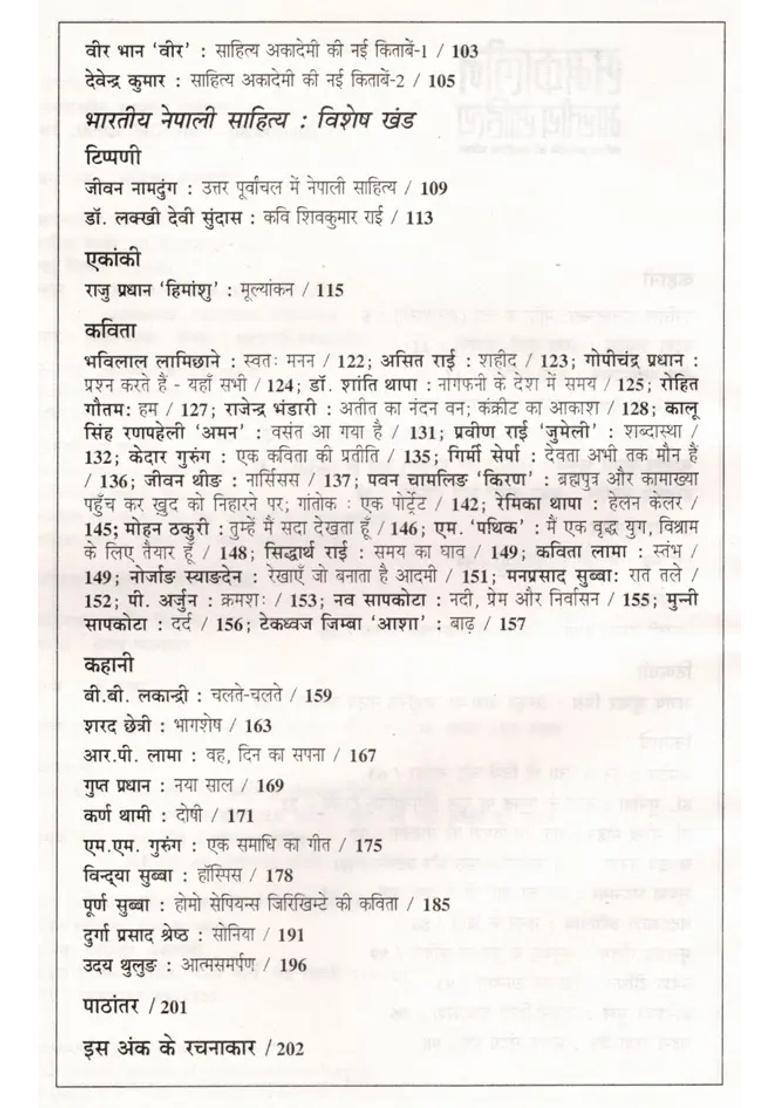 वीर भान ‘वीर’ : साहित्य अकादेमी की नई किताबें-1 / 103
देवेन्द्र कुमार : साहित्य अकादेमी की नई किताबें-2 / 105
भारतीय नेपाली साहित्य : विशेष खंड
टिप्पणी
जीवन नामदुंग : उत्तर पूर्वांचल में नेपाली साहित्य / 109
डॉ. लक्खी देवी सुंदास : कवि शिवकुमार राई / 113
एकांकी
राजु प्रधान ‘हिमांशु’ : मूल्यांकन / 115
कविता
भविलाल लामिछाने : स्वतः मनन / 122; असित राई : शहीद / 123; गोपीचंद्र प्रधान :
प्रश्न करते हैं - यहाँ सभी / 124; डॉ. शांति थापा : नागफनी के देश में समय / 125; रोहित
गौतम: हम / 127; राजेन्द्र भंडारी : अतीत का नंदन वन; कंक्रीट का आकाश / 128; कालू
सिंह रणपहेली ‘अमन’ : वसंत आ गया है / 131; प्रवीण राई ‘जुमेली’ : शब्दास्था /
132; केदार गुरुंग : एक कविता की प्रतीति / 135; गिर्मी सेर्पा : देवता अभी तक मौन हैं
/ 136; जीवन थीङ : नार्सिसस / 137; पवन चामलिङ ‘किरण’ : ब्रह्मपुत्र और कामाख्या
पहुँच कर खुद को निहारने पर; गांतोक : एक पोर्ट्रेट / 142; रेमिका थापा : हेलन केलर /
145; मोहन ठकुरी : तुम्हें मैं सदा देखता हूँ / 146; एम. ‘पथिक’ : मैं एक वृद्ध युग, विश्राम
के लिए तैयार हूँ / 148; सिद्धार्थ राई : समय का घाव / 149; कविता लामा : स्तंभ /
149; नोर्जाङ स्याङदेन : रेखाएँ जो बनाता है आदमी / 151; मनप्रसाद सुब्बा: रात तले /
152; पी. अर्जुन : क्रमशः / 153; नव सापकोटा : नदी, प्रेम और निर्वासन / 155; मुन्नी
सापकोटा : दर्द / 156; टेकध्वज जिम्बा ‘आशा’ : बाढ़ / 157
कहानी
वी.बी. लकान्द्री : चलते-चलते / 159
शरद छेत्री : भागशेष / 163
आर.पी. लामा : वह, दिन का सपना / 167
गुप्त प्रधान : नया साल / 169
कर्ण थामी : दोषी / 171
एम.एम. गुरुंग : एक समाधि का गीत / 175
विन्द्या सुब्बा : हॉस्पिस / 178
पूर्ण सुब्बा : होमो सेपियन्स जिरिखिम्टे की कविता / 185
दुर्गा प्रसाद श्रेष्ठ : सोनिया / 191
उदय थुलुङ : आत्मसमर्पण / 196
पाठांतर / 201
इस अंक के रचनाकार / 202